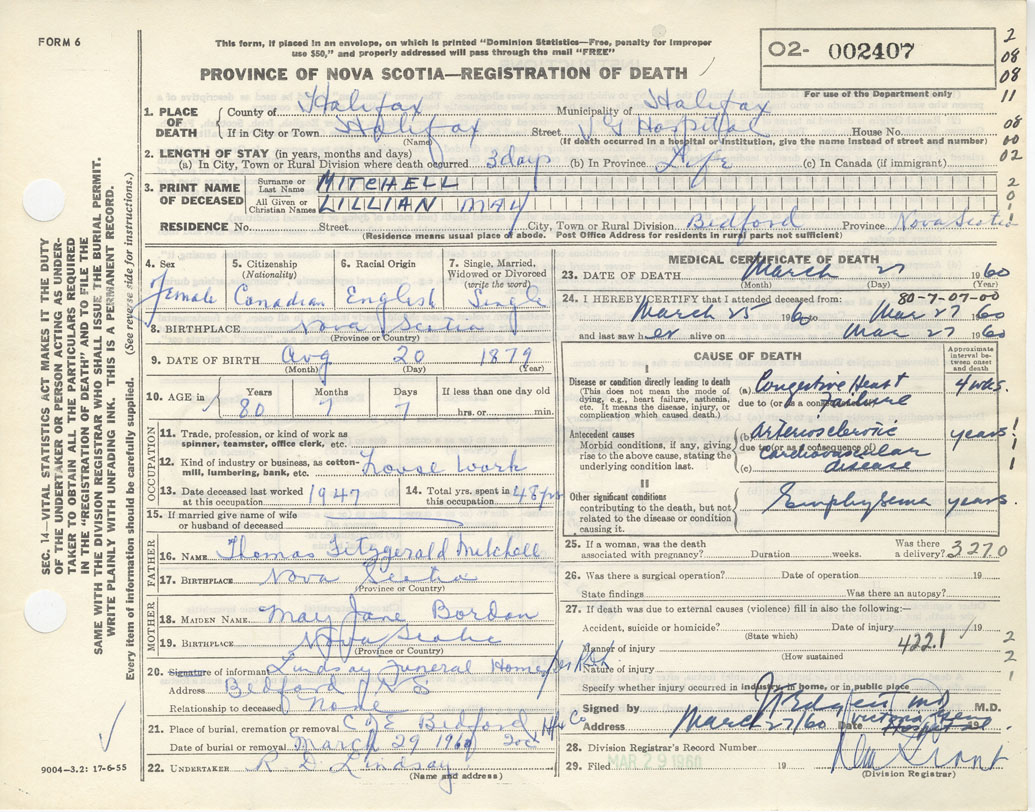 FORM 6
This form, if placed in an envelope, on which is printed "Dominion Statistics—Free, penalty for improper
use $50," and properly addressed will pass through the mail "FREE"
PROVINCE OF NOVA SCOTIA—REGISTRATION OF DEATH
O2- 002407
For use of the Department only
2
08
08
11
08
00
02
2
0
1
1. PLACE OF DEATH County of Halifax Municipality of Halifax
If in City or Town Halifax Street V G Hospital House No.
(Name) (If death occurred in a hospital or institution, give the name instead of street and number)
2. LENGTH OF STAY (in years, months and days)
(a) In City, Town or Rural Division where death occurred 3 days (b) In Province Life (c) In Canada (if immigrant)
3. PRINT NAME OF DECEASED
Surname or Last Name MITCHELL
All Given or Christian Names LILLIAN MAY
RESIDENCE No. Street City, Town or Rural Division Bedford Province Nova Scotia
(Residence means usual place of abode. Post Office Address for residents in rural parts not sufficient)
4. Sex female
5. Citizenship (Nationality) Canadian
6. Racial Origin English
7. Single, Married, Widowed or Divorced (write the word) Single
8. BIRTHPLACE Nova Scotia
(Province or Country)
9. DATE OF BIRTH Aug 20 1879
(Month) (Day) (Year)
10. AGE in Years Months Days If less than one day old
80 7 7 hrs. or min.
OCCUPATION
11. Trade, profession, or kind of work as spinner, teamster, office clerk, etc.
12. Kind of industry or business, as cotton-mill, lumbering, bank, etc. House Work
13. Date deceased last worked at this occupation 1947
14. Total yrs. spent in this occupation 48 yrs
15. If married give name of wife or husband of deceased
FATHER
16. NAME Thomas Fitzgerald Mitchell
17. BIRTHPLACE Nova Scotia
(Province or Country)
MOTHER
18. MAIDEN NAME May Jane Bordon
19. BIRTHPLACE Nova Scotia
(Province or Country)
20. Signature of informant Lindsay Funeral Home per
Address Bedford NS
Relationship to deceased None
21. Place of burial, cremation or removal C of E Bedford Hfx Co
Date of burial or removal March 29 1960
22. UNDERTAKER R D Lindsay
(Name and address)
MEDICAL CERTIFICATE OF DEATH
23. DATE OF DEATH March 27 1960
(Month) (Day) (Year)
80-7-07-00
24. I HEREBY CERTIFY that I attended deceased from:
March 25 1960 to Mar 27 1960
and last saw her alive on Mar 27 1960
CAUSE OF DEATH
Approximate interval between onset and death
I
Disease or condition directly leading to death
This does not mean the mode of dying, e.g., heart failure, asthenia, etc. It means the disease, injury, or complication which caused death.)
(a) Congestive Heart Failure 4 wks.
due to (or as a consequence of)
Antecedent causes
Morbid conditions, if any, giving rise to the above cause, stating the underlying condition last.
(b) Arteriosclerotic years
due to (or as a consequence of)
(c) cardiovascular disease
II
Other significant conditions
contributing to the death, but not related to the disease or condition causing it.
Emphysema years
1
1
1
25. If a woman, was the death associated with pregnancy? Duration weeks. Was there a delivery? 3270
26. Was there a surgical operation? Date of operation 19
State findings Was there an autopsy?
27. If death was due to external causes (violence) fill in also the following:—
Accident, suicide or homicide? Date of injury 19
(State which)
422.1
Manner of injury
(How sustained
Nature of injury
2
2
1
Specify whether injury occurred in industry, in home, or in public place
Signed by M.D.
Address March 27/60 Date Victoria General Hospital 19
28. Division Registrar's Record Number
29. Filed MAR 29 1960 19
(Division Registrar)
SEC. 14—VITAL STATISTICS ACT MAKES IT THE DUTY
OF THE UNDERTAKER OR PERSON ACTING AS UNDER-
TAKER TO OBTAIN ALL THE PARTICULARS REQUIRED
IN THE "REGISTRATION OF DEATH" AND TO FILE THE
SAME WITH THE DIVISION REGISTRAR WHO SHALL ISSUE THE BURIAL PERMIT.
WRITE PLAINLY WITH UNFADING INK. THIS IS A PERMANENT RECORD.
Every item of information should be carefully supplied. (See reverse side for instructions.)
9004—3.2: 17-6-55